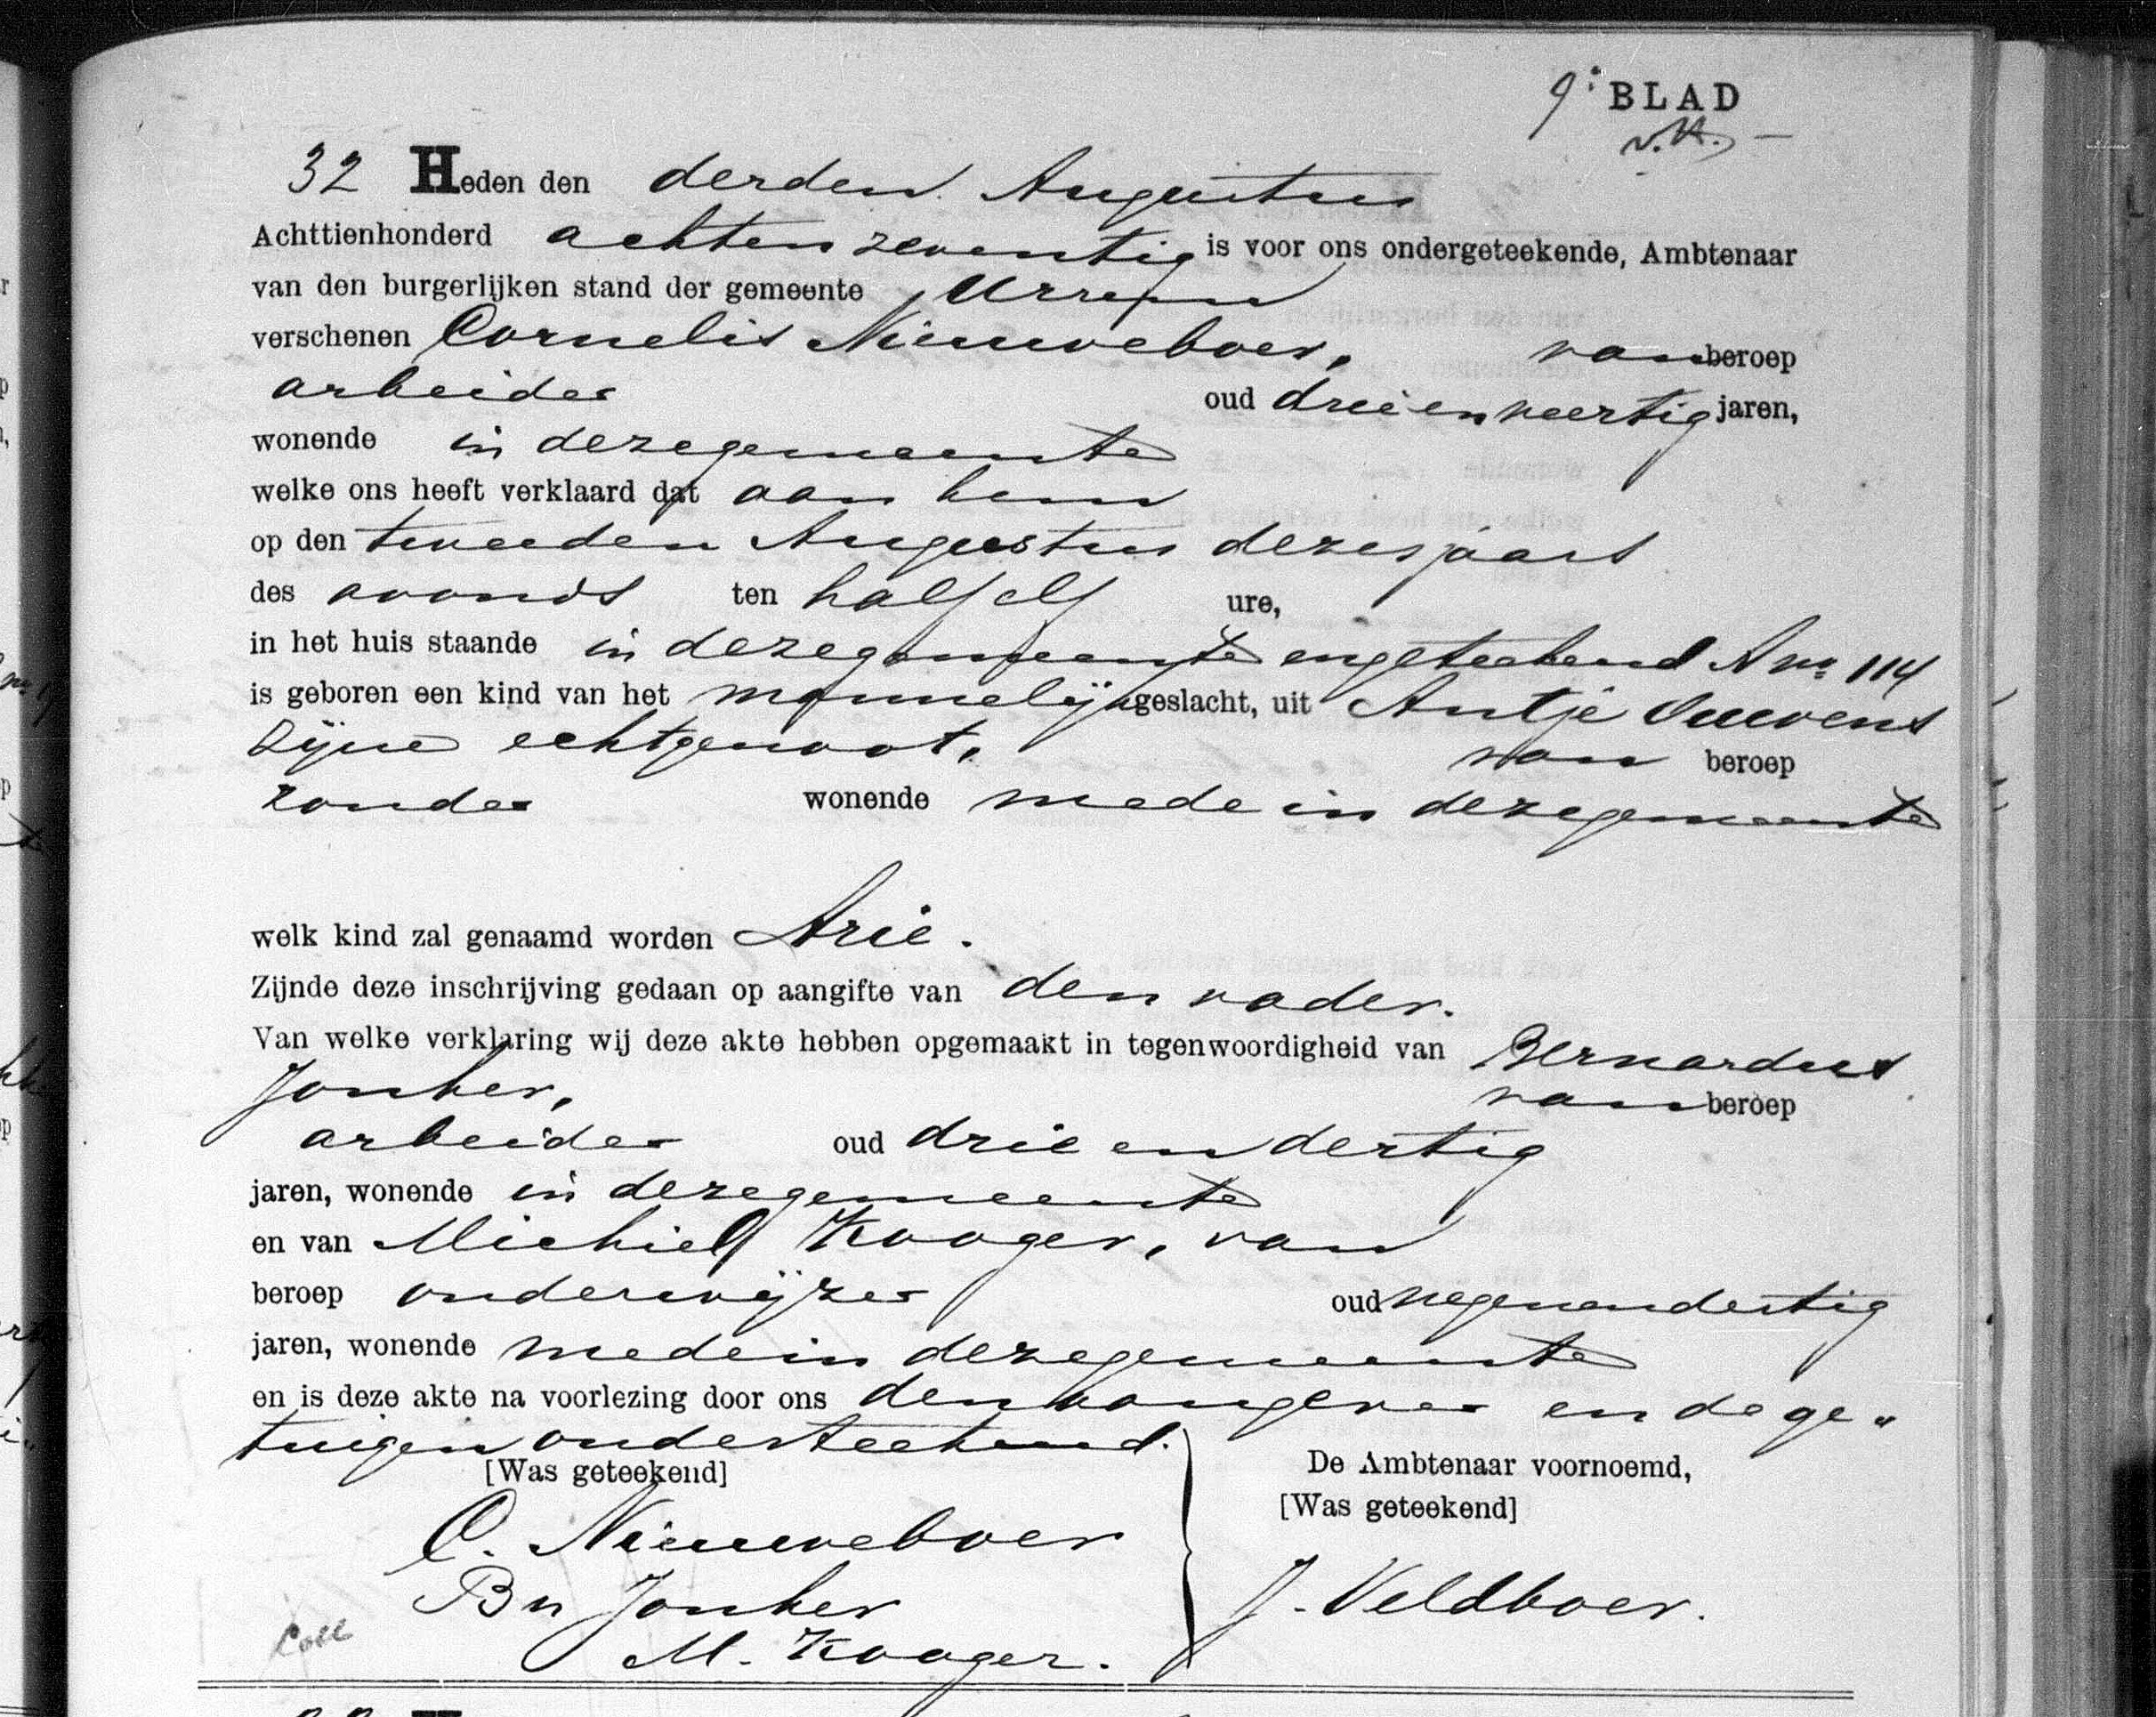 9e BLAD
v.H.
32 Heden den derden Augustus
Achttienhonderd achtenzeventig is voor ons ondergeteekende, Ambtenaar
van den burgerlijken stand der gemeente Ursem
verschenen Cornelis Nieuweboer, van beroep
arbeider oud drieenveertig jaren,
wonende in dezegemeente
welke ons heeft verklaard dat aan hem
op den tweeden Augustus dezesjaars
des avonds ten half elf ure,
in het huis staande in dezegemeente engeteekend A no 114
is geboren een kind van het mannelijk geslacht, uit Antje
zijne echtgenoot, van beroep
zonder wonende mede in dezegemeente
welk kind zal genaamd worden Arie.
Zijnde deze inschrijving gedaan op aangifte van den vader.
Van welke verklaring wij deze akte hebben opgemaakt in tegenwoordigheid van Bernardus
Jonker, van beroep
arbeider oud drie en dertig
jaren, wonende in dezegemeente
en van Michiel Kooger, van
beroep onderwijzer oud negenendertig
jaren, wonende mede in dezegemeente
en is deze akte na voorlezing door ons den aangever en de ge„
tuigen onderteekend.
[Was geteekend] De Ambtenaar voornoemd,
[Was geteekend]
C. Nieuweboer
Bn Jonker J. Veldboer.
M. Kooger.
Coll